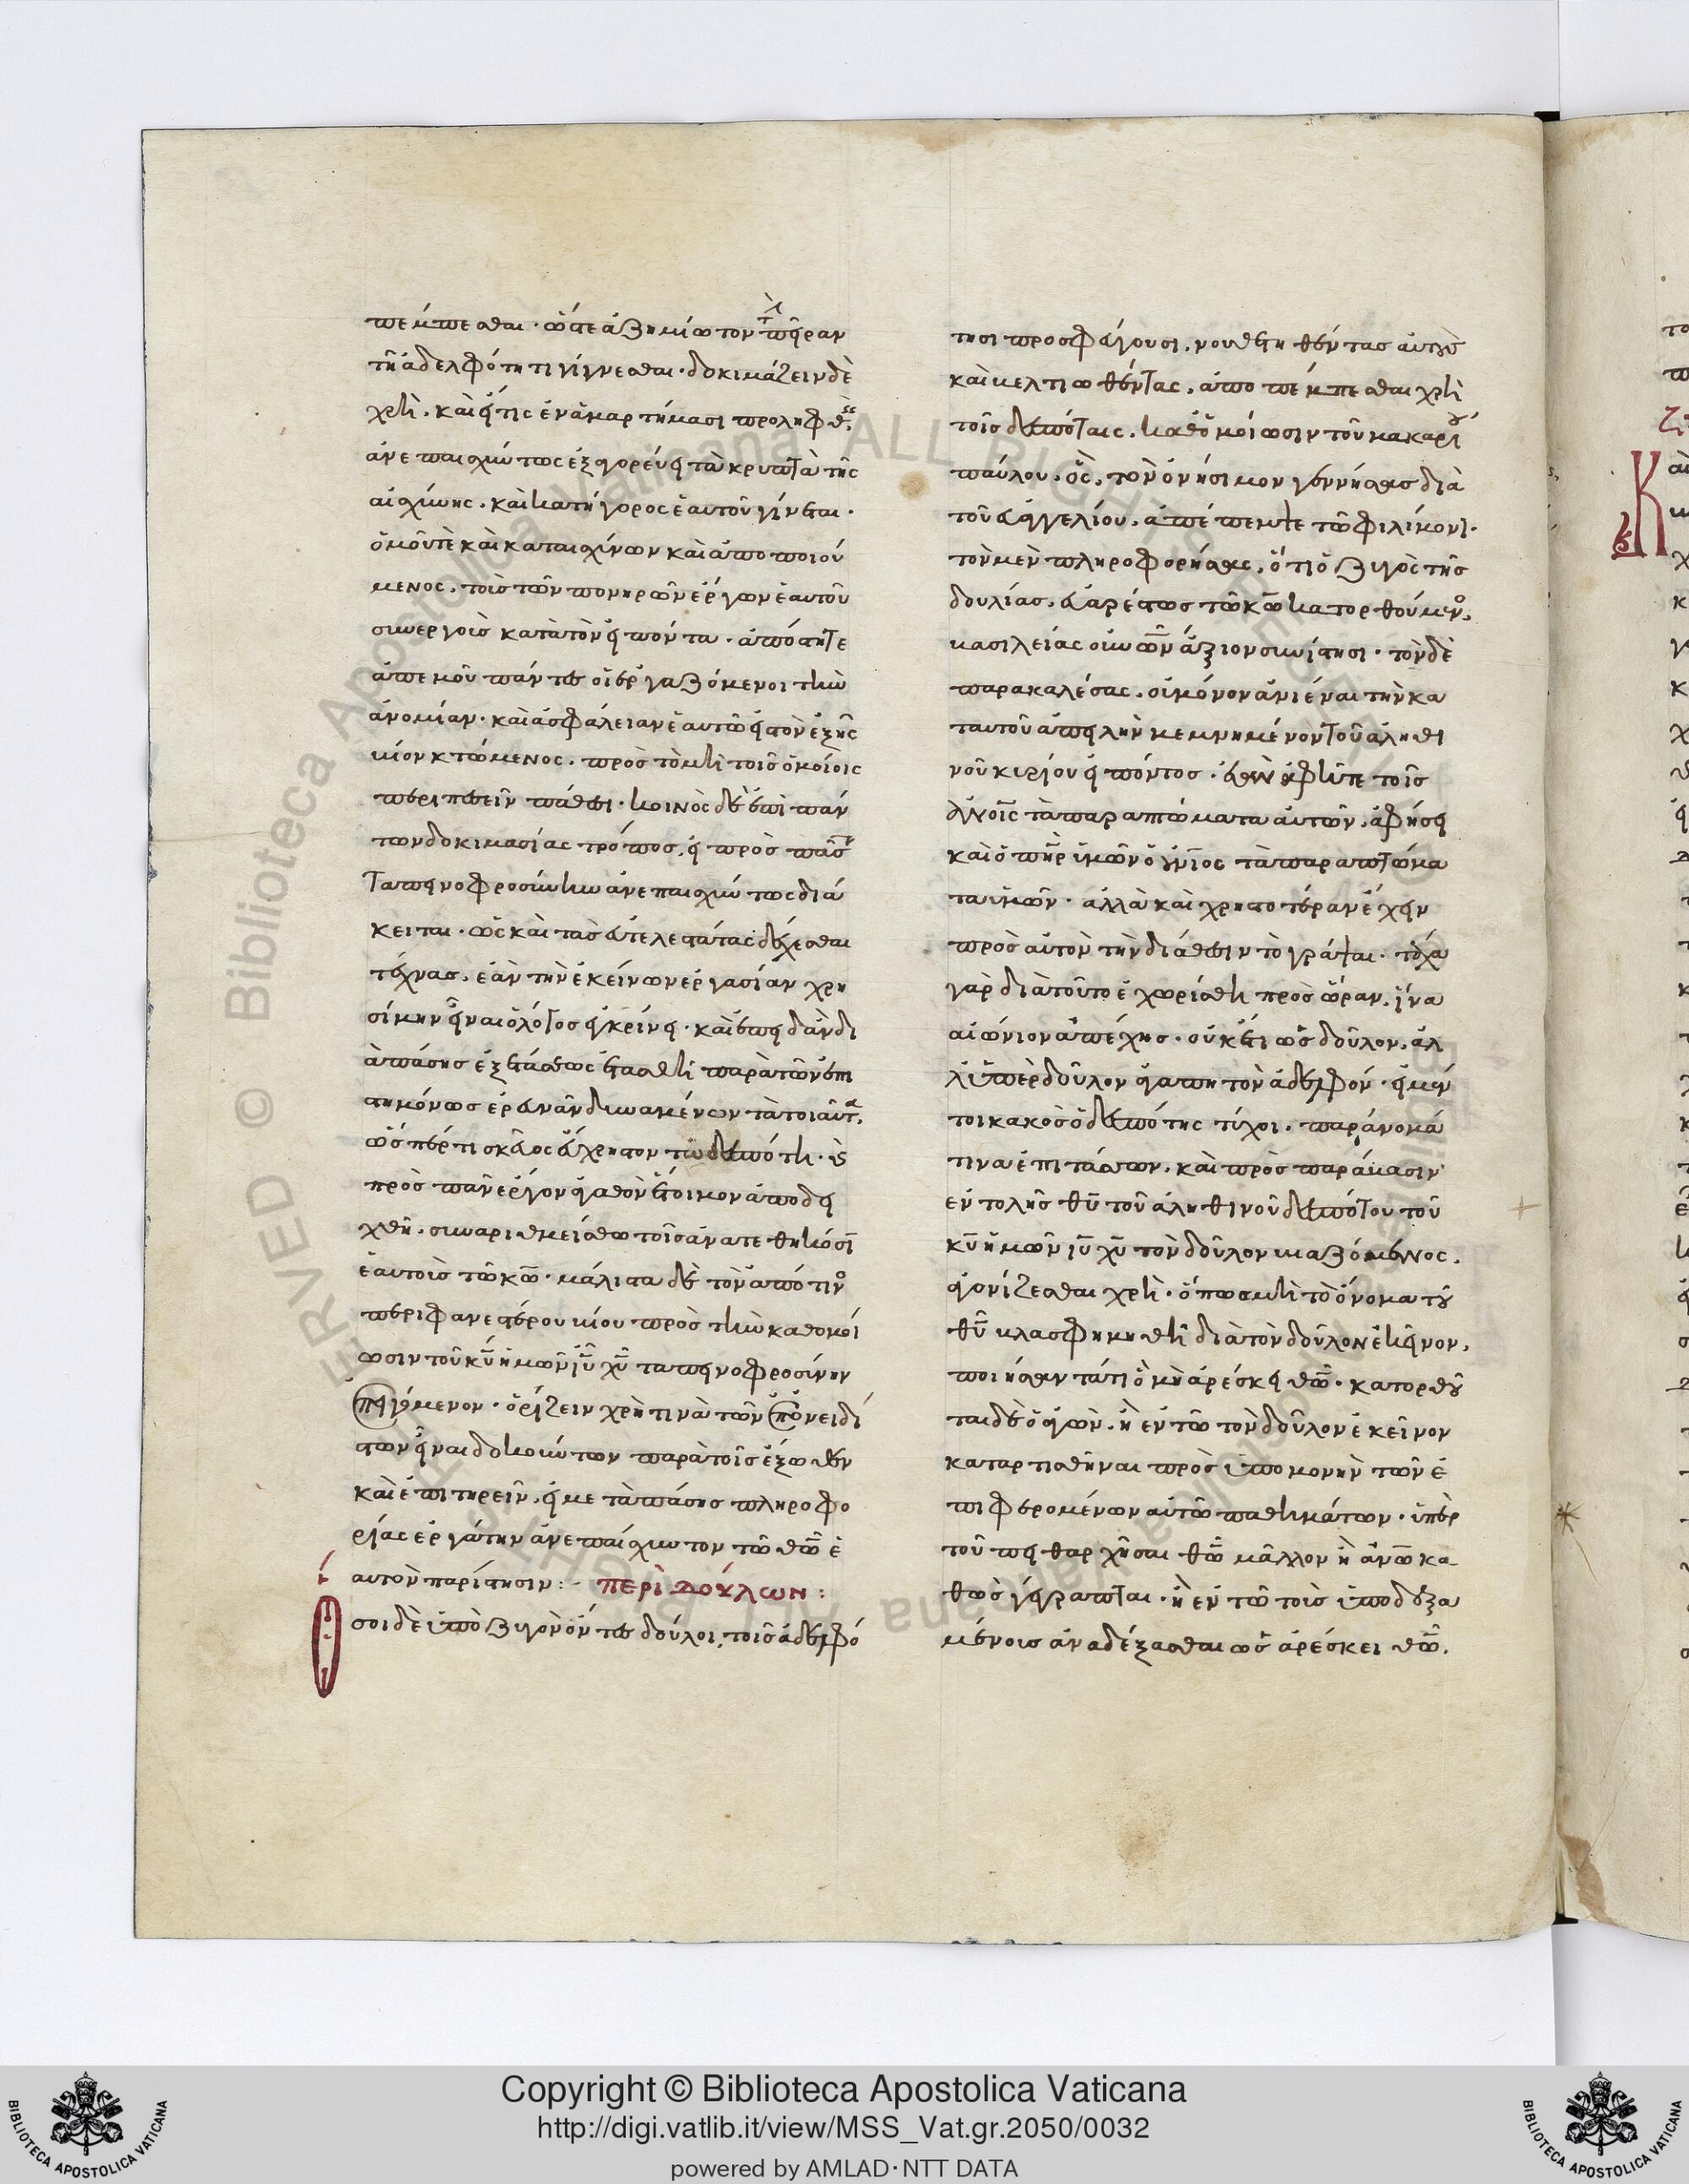 πέμπεσθαι· ὥστε ἀζημίωτον τὴν πεῖραν
τῇ ἀδελφότητι γίγνεσθαι· δοκιμάζειν δὲ
χρὴ, καὶ εἴ τις ἐν ἁμαρτήμασι προληφθεὶς,
ἀνεπαισχύντως ἐξαγορεύει τὰ κρυπτὰ τῆς
αἰσχύνης, καὶ κατήγορος ἑαυτοῦ γίνεται·
ὁμοῦ τὲ καὶ καταισχύνων καὶ ἀποποιού
μενος, τοῖς τῶν πονηρῶν ἔργων ἑαυτοῦ
συνεργοῖς κατὰ τὸν εἰπόντα· ἀπόστητε
ἀπ' ἐμοῦ πάντες οἱ ἐργαζόμενοι τὴν
ἀνομίαν· καὶ ἀσφάλειαν ἑαυτῷ εἰς τὸν ἑξῆς
βίον κτώμενος, πρὸς τὸ μὴ τοῖς ὁμοίοις
περιπεσεῖν πάθεσι· κοινὸς δὲ ἐπὶ πάν
των δοκιμασίας τρόπος, εἰ πρὸς πᾶσαν
ταπεινοφροσύνην ἀνεπαισχύντως διά
κειται· ὡς καὶ τὰς εὐτελεστάτας δέχεσθαι
τέχνας, ἐὰν τὴν ἐκείνων ἐργασίαν χρη
σίμην εἶναι ὁ λόγος ἐγκρίνει· καὶ ἐπειδὰν δι
ὰ πάσης ἐξετάσεως ἑτασθῇ παρὰ τῶν ἐπι
στημόνως ἐρευνᾶν δυναμένων τὰ τοιαῦτα,
ὥσπερ τι σκεῦος εὔχρηστον τῷ δεσπότῃ· καὶ
πρὸς πᾶν ἔργον ἀγαθὸν ἕτοιμον ἀποδει
χθῇ, συναριθμείσθω τοῖς ἀνατεθηκόσιν
ἑαυτοὺς τῷ κῷ· μάλιστα δὲ τὸν ἀπό τινος
περιφανεστέρου βίου πρὸς τὴν καθ' ὁμοί
ωσιν τοῦ κυ ἡμῶν ιυ χυ ταπεινοφροσύνην
ἐπειγόμενον· ὁρίζειν χρή τινὰ τῶν ἐπονειδί
στων εἶναι δοκούντων παρὰ τοῖς ἔξωθεν
καὶ ἐπιτηρεῖν, εἰ μετὰ πάσης πληροφο
ρίας ἐργάτην ἀνεπαίσχυντον τῷ θῷ ἑ
αυτὸν παρίστησιν:· ΠΕΡὶ ΔΟΎΛΩΝ:
Ὅσοι δὲ ὑπὸ ζυγὸν ὄντες δοῦλοι, τοῖς ἀδελφό
τησι προσφεύγουσι, νουθετηθέντας αὐτοὺς
καὶ βελτιωθέντας, ἀποπέμπεσθαι χρὴ
τοῖς δεσπόταις, καθ' ὁμοίωσιν τοῦ μακαρίου
παύλου· ὃς, τὸν ὀνήσιμον γεννήσας διὰ
τοῦ εὐαγγελίου, ἀπέπεμψε τῷ φιλήμονι·
τὸν μὲν πληροφορήσας, ὅτι ὁ ζυγὸς τῆς
δουλίας, εὐαρέστως τῷ κῷ κατορθούμενος,
βασιλείας οὐνῶν ἄξιον συνίστησι· τὸν δὲ
παρακαλέσας, οὐ μόνον ἀνιέναι τὴν κα
τ' αὐτοῦ ἀπειλὴν μεμνημένον τοῦ ἀληθι
νοῦ κυρίου εἰπόντος· ἐὰν ἀφῆτε τοῖς
ἀνοις τὰ παραπτώματα αὐτῶν, ἀφήσει
καὶ ὁ πηρ ὑμῶν ὁ οὐνιος τὰ παραπτώμα
τα ὑμῶν· ἀλλὰ καὶ χρηστοτέραν ἔχειν
πρὸς αὐτὸν τὴν διάθεσιν τὸ γράψαι· τάχα
γὰρ διὰ τοῦτο ἐχωρίσθη πρὸς ὥραν, ἵνα
αἰώνιον ἀπέχῃς· οὐκέτι ὡς δοῦλον, ἀλ
λ' ὑπὲρ δοῦλον ἀγαπητὸν ἀδελφόν· εἰ μέν
τοι κακὸς ὁ δεσπότης τύχοι, παράνομά
τινα ἐπιτάσσων, καὶ πρὸς παράβασιν
ἐντολῆς θυ τοῦ ἀληθινοῦ δεσπότου τοῦ
κυ ἡμῶν ιυ χυ τὸν δοῦλον βιαζόμενος,
ἀγωνίζεσθαι χρὴ· ὅπως μὴ τὸ ὄνομα τοῦ
θυ βλασφημηθῇ διὰ τὸν δοῦλον ἐκεῖνον,
ποιήσαντά τι ὃ μὴ ἀρέσκει θῷ· κατορθοῦ
ται δὲ ὁ ἀγὼν, ἢ ἐν τῷ τὸν δοῦλον ἐκεῖνον
καταρτισθῆναι πρὸς ὑπομονὴν τῶν ἐ
πιφερομένων αὐτῷ παθημάτων· ὑπὲρ
τοῦ πειθαρχῆσαι θῷ μᾶλλον ἢ ἀνῷ κα
θὼς γέγραπται· ἢ ἐν τῷ τοὺς ὑποδεξα
μένους ἀναδέξασθαι ὡς ἀρέσκει θῷ,
Copyright © Biblioteca Apostolica Vaticana
http://digi.vatlib.it/view/MSS_Vat.gr.2050/0032
powered by AMLAD·NTT DATA